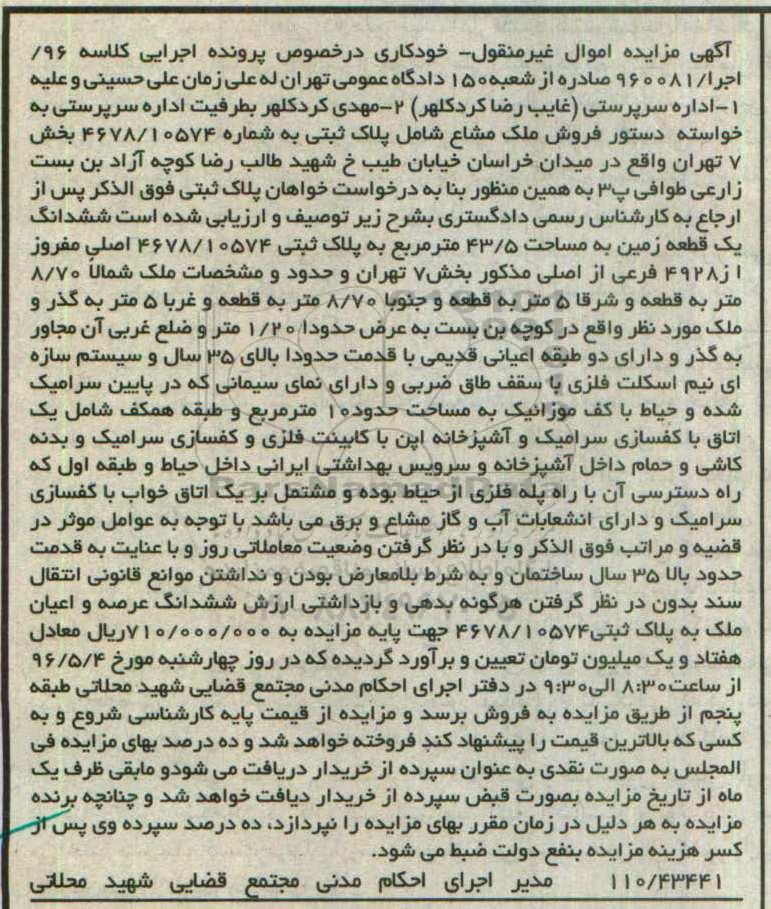 آگهی مزایده اموال غیرمنقول- خودکاری درخصوص پرونده اجرایی کلاسه ۹۶/
اجرا/۹۶۰۰۸۱ صادره از شعبه۱۵۰ دادگاه عمومی تهران له علی زمان علی حسینی و علیه
۱-اداره سرپرستی (غایب رضا کردکلهر) ۲-مهدی کردکلهر بطرفیت اداره سرپرستی به
خواسته دستور فروش ملک مشاع شامل پلاک ثبتی به شماره ۴۶۷۸/۱۰۵۷۴ بخش
۷ تهران واقع در میدان خراسان خیابان طیب خ شهید طالب رضا کوچه آزاد بن بست
زارعی طوافی پ۳ به همین منظور بنا به درخواست خواهان پلاک ثبتی فوق الذکر پس از
ارجاع به کارشناس رسمی دادگستری بشرح زیر توصیف و ارزیابی شده است ششدانگ
یک قطعه زمین به مساحت ۴۳/۵ مترمربع به پلاک ثبتی ۴۶۷۸/۱۰۵۷۴ اصلی مفروز
ا ز۴۹۲۸ فرعی از اصلی مذکور بخش۷ تهران و حدود و مشخصات ملک شمالا ۸/۷۰
متر به قطعه و شرقا ۵ متر به قطعه و جنوبا ۸/۷۰ متر به قطعه و غربا ۵ متر به گذر و
ملک مورد نظر واقع در کوچه بن بست به عرض حدودا ۱/۲۰ متر و ضلع غربی آن مجاور
به گذر و دارای دو طبقه اعیانی قدیمی با قدمت حدودا بالای ۳۵ سال و سیستم سازه
ای نیم اسکلت فلزی با سقف طاق ضربی و دارای نمای سیمانی که در پایین سرامیک
شده و حیاط با کف موزائیک به مساحت حدود۱۰ مترمربع و طبقه همکف شامل یک
اتاق با کفسازی سرامیک و آشپزخانه اپن با کابینت فلزی و کفسازی سرامیک و بدنه
کاشی و حمام داخل آشپزخانه و سرویس بهداشتی ایرانی داخل حیاط و طبقه اول که
راه دسترسی آن با راه پله فلزی از حیاط بوده و مشتمل بر یک اتاق خواب با کفسازی
سرامیک و دارای انشعابات آب و گاز مشاع و برق می باشد با توجه به عوامل موثر در
قضیه و مراتب فوق الذکر و با در نظر گرفتن وضعیت معاملاتی روز و با عنایت به قدمت
حدود بالا ۳۵ سال ساختمان و به شرط بلامعارض بودن و نداشتن موانع قانونی انتقال
سند بدون در نظر گرفتن هرگونه بدهی و بازداشتی ارزش ششدانگ عرصه و اعیان
ملک به پلاک ثبتی۴۶۷۸/۱۰۵۷۴ جهت پایه مزایده به ۷۱۰/۰۰۰/۰۰۰ریال معادل
هفتاد و یک میلیون تومان تعیین و برآورد گردیده که در روز چهارشنبه مورخ ۹۶/۵/۴
از ساعت۸:۳۰ الی۹:۳۰ در دفتر اجرای احکام مدنی مجتمع قضایی شهید محلاتی طبقه
پنجم از طریق مزایده به فروش برسد و مزایده از قیمت پایه کارشناسی شروع و به
کسی که بالاترین قیمت را پیشنهاد کند فروخته خواهد شد و ده درصد بهای مزایده فی
المجلس به صورت نقدی به عنوان سپرده از خریدار دریافت می شودو مابقی ظرف یک
ماه از تاریخ مزایده بصورت قبض سپرده از خریدار دیافت خواهد شد و چنانچه برنده
مزایده به هر دلیل در زمان مقرر بهای مزایده را نپردازد، ده درصد سپرده وی پس از
کسر هزینه مزایده بنفع دولت ضبط می شود.
۱۱۰/۴۳۴۴۱ مدیر اجرای احکام مدنی مجتمع قضایی شهید محلاتی
ParsNamadData